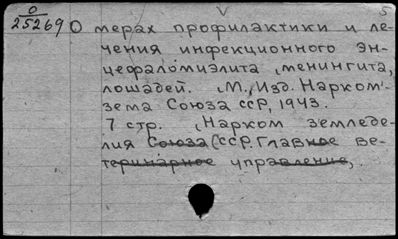 О
V
5
25269
О мерах профилактики и ле-
чения инфекционного эн-
цефаломиэлита, менингита,
лошадей. М., Изд. Нарком-
зема Союза ССР, 1943.
7 стр. (Нарком земледе-
лия Союза ССР. Главное ве-
теринарное управление,